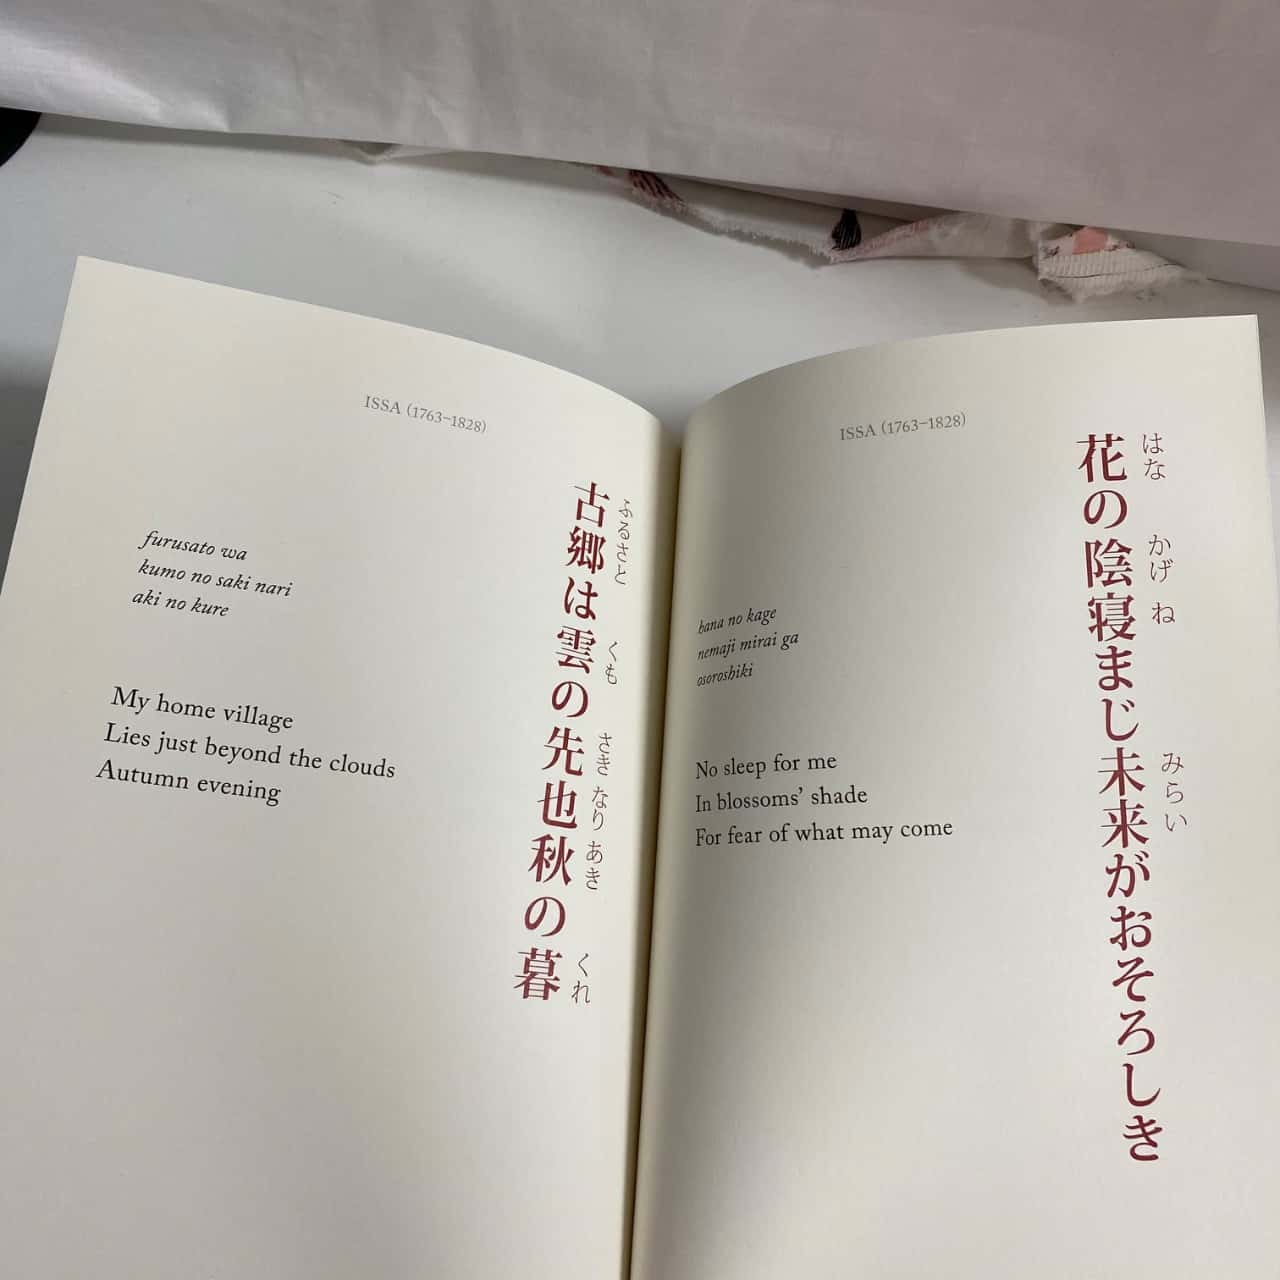 ISSA (1763–1828)
古郷は雲の先也秋の暮
ふるさと くも さき なり あき くれ
furusato wa
kumo no saki nari
aki no kure
My home village
Lies just beyond the clouds
Autumn evening
ISSA (1763–1828)
花の陰寝まじ未来がおそろしき
はな かげ ね みらい
hana no kage
nemaji mirai ga
osoroshiki
No sleep for me
In blossoms’ shade
For fear of what may come